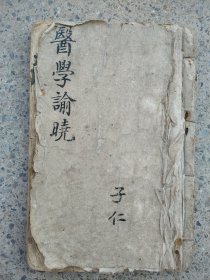 醫學諭曉
子仁